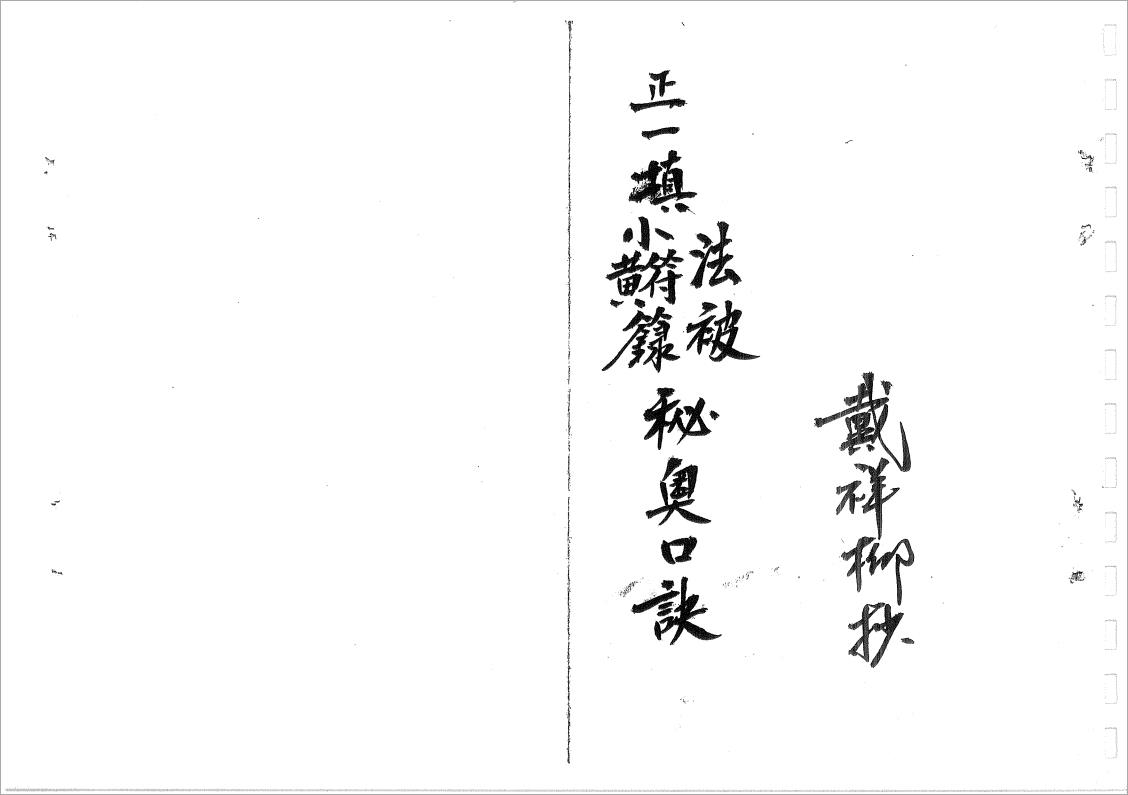 戴祥柳抄
法被
正一填小符黄籙秘奥口訣